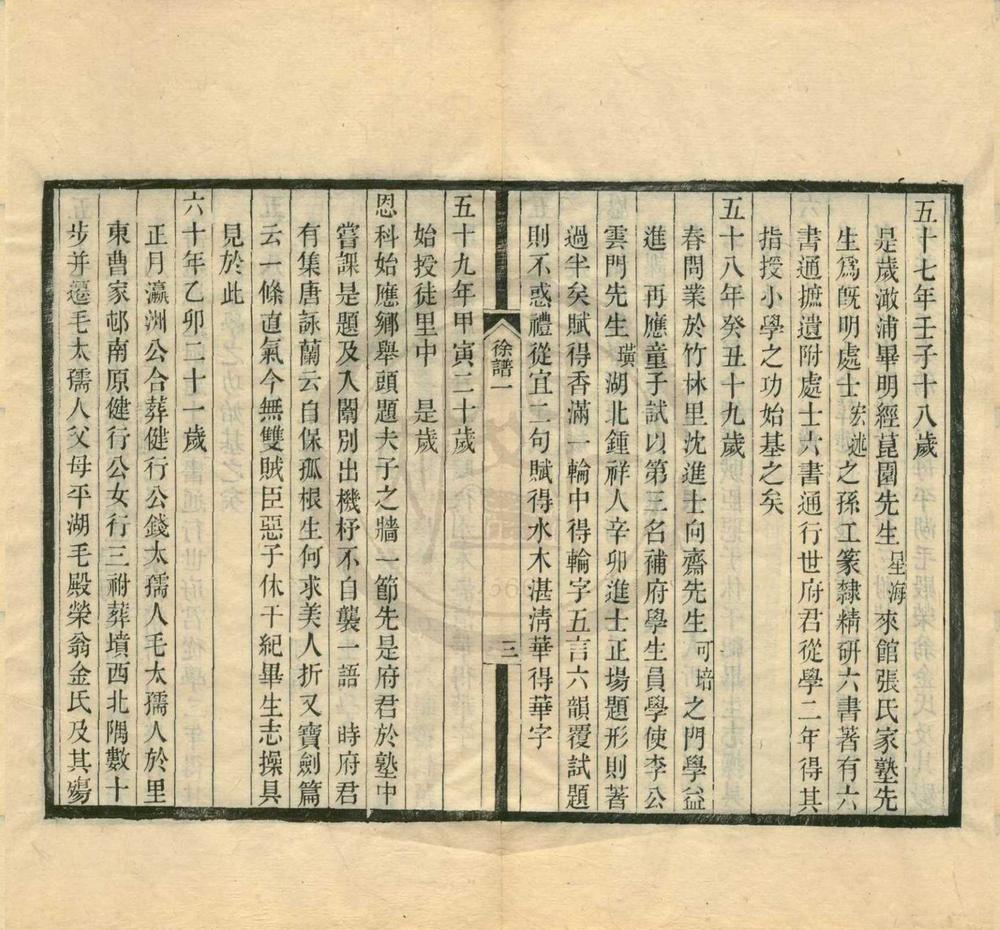 五十七年壬子十八歲
是歲澉浦畢明經崑園先生星海來館張氏家塾先
生爲旣明處士宏述之孫工篆隸精研六書著有六
書通摭遺附處士六書通行世府君從學二年得其
指授小學之功始基之矣
五十八年癸丑十九歲
春問業於竹林里沈進士向齋先生可培之門學益
進 再應童子試以第三名補府學生員學使李公
雲門先生璜湖北鍾祥人辛卯進士正場題形則著
過半矣賦得香滿一輪中得輪字五言六韻覆試題
則不惑禮從宜二句賦得水木湛淸華得華字
徐譜一
三
五十九年甲寅二十歲
始授徒里中 是歲
恩科始應鄉舉頭題夫子之牆一節先是府君於塾中
嘗課是題及入闈別出機杼不自襲一語 時府君
有集唐詠蘭云自保孤根生何求美人折又寶劍篇
云一條直氣今無雙賊臣惡子休干紀畢生志操具
見於此
六十年乙卯二十一歲
正月瀛洲公合葬健行公錢太孺人毛太孺人於里
東曹家邨南原健行公女行三祔葬墳西北隅數十
步并遷毛太孺人父母平湖毛殿榮翁金氏及其殤